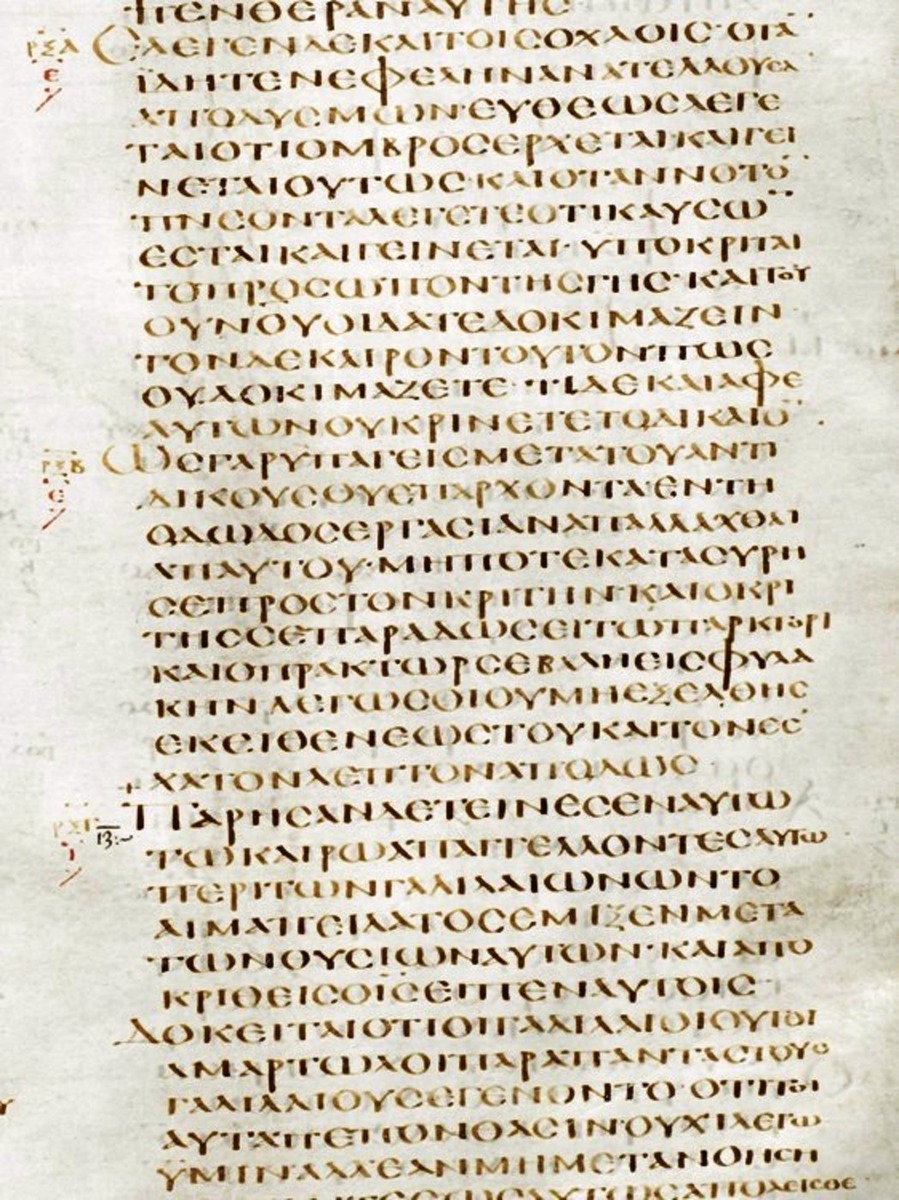 ΠΕΝΘΕΡΑΝΑΥΤΗϹ
ΡΞΑ ΕΛΕΓΕΝΔΕΚΑΙΤΟΙϹΟΧΛΟΙϹ·ΟΤΑ̅
Ε ΪΔΗΤΕΝΕΦΕΛΗΝΑΝΑΤΕΛΛΟΥϹΑ̅
ΑΠΟΔΥϹΜΩΝ·ΕΥΘΕΩϹΛΕΓΕ
ΤΑΙΟΤΙΟΜΒΡΟϹΕΡΧΕΤΑΙ·ΚΑΙΓΕΙ
ΝΕΤΑΙΟΥΤΩϹ·ΚΑΙΟΤΑΝΝΟΤΟ̅
ΠΝΕΟΝΤΑΛΕΓΕΤΕΟΤΙΚΑΥϹΩ̅
ΕϹΤΑΙΚΑΙΓΕΙΝΕΤΑΙ·ΥΠΟΚΡΙΤΑΙ
ΤΟΠΡΟϹΩΠΟΝΤΗϹΓΗϹ·ΚΑΙΤΟΥ
ΟΥΝΟΥΟΙΔΑΤΕΔΟΚΙΜΑΖΕΙΝ
ΤΟΝΔΕΚΑΙΡΟΝΤΟΥΤΟΝΠΩϹ
ΟΥΔΟΚΙΜΑΖΕΤΕ·ΤΙΔΕΚΑΙΑΦΕ
ΑΥΤΩΝΟΥΚΡΙΝΕΤΕΤΟΔΙΚΑΙΟ̅
ΡΞΒ ΩϹΓΑΡΥΠΑΓΕΙϹΜΕΤΑΤΟΥΑΝΤΙ
Ε ΔΙΚΟΥϹΟΥΕΠΑΡΧΟΝΤΑΕΝΤΗ
ΟΔΩΔΟϹΕΡΓΑϹΙΑΝΑΠΑΛΛΑΧΘΑΙ
ΑΠΑΥΤΟΥ·ΜΗΠΟΤΕΚΑΤΑϹΥΡΗ
ϹΕΠΡΟϹΤΟΝΚΡΙΤΗΝ·ΚΑΙΟΚΡΙ
ΤΗϹϹΕΠΑΡΑΔΩϹΕΙΤΩΠΡΑΚΤΟΡΙ
ΚΑΙΟΠΡΑΚΤΩΡϹΕΒΑΛΗΕΙϹΦΥΛΑ
ΚΗΝ·ΛΕΓΩϹΟΙΟΥΜΗΕΞΕΛΘΗϹ
ΕΚΕΙΘΕΝΕΩϹΤΟΥΚΑΙΤΟΝΕϹ
ΧΑΤΟΝΛΕΠΤΟΝΑΠΟΔΩϹ
ΡΞΓ ΠΑΡΗϹΑΝΔΕΤΕΙΝΕϹΕΝΑΥΤΩ
Ι ΤΩΚΑΙΡΩΑΠΑΓΓΕΛΛΟΝΤΕϹΑΥΤΩ
ΠΕΡΙΤΩΝΓΑΛΙΛΑΙΩΝΩΝΤΟ
ΑΙΜΑΠΕΙΛΑΤΟϹΕΜΙΞΕΝΜΕΤΑ
ΤΩΝΘΥϹΙΩΝΑΥΤΩΝ·ΚΑΙΑΠΟ
ΚΡΙΘΕΙϹΟΙ̅Ϲ̅ΕΙΠΕΝΑΥΤΟΙϹ
ΔΟΚΕΙΤΑΙΟΤΙΟΙΓΑΛΙΛΑΙΟΙΟΥΤΟΙ
ΑΜΑΡΤΩΛΟΙΠΑΡΑΠΑΝΤΑϹΤΟΥϹ
ΓΑΛΙΛΑΙΟΥϹΕΓΕΝΟΝΤΟ·ΟΤΙΤΟΙ
ΑΥΤΑΠΕΠΟΝΘΑϹΙΝΟΥΧΙΛΕΓΩ
ΥΜΙΝΑΛΛΕΑΝΜΗΜΕΤΑΝΟΗϹΗ